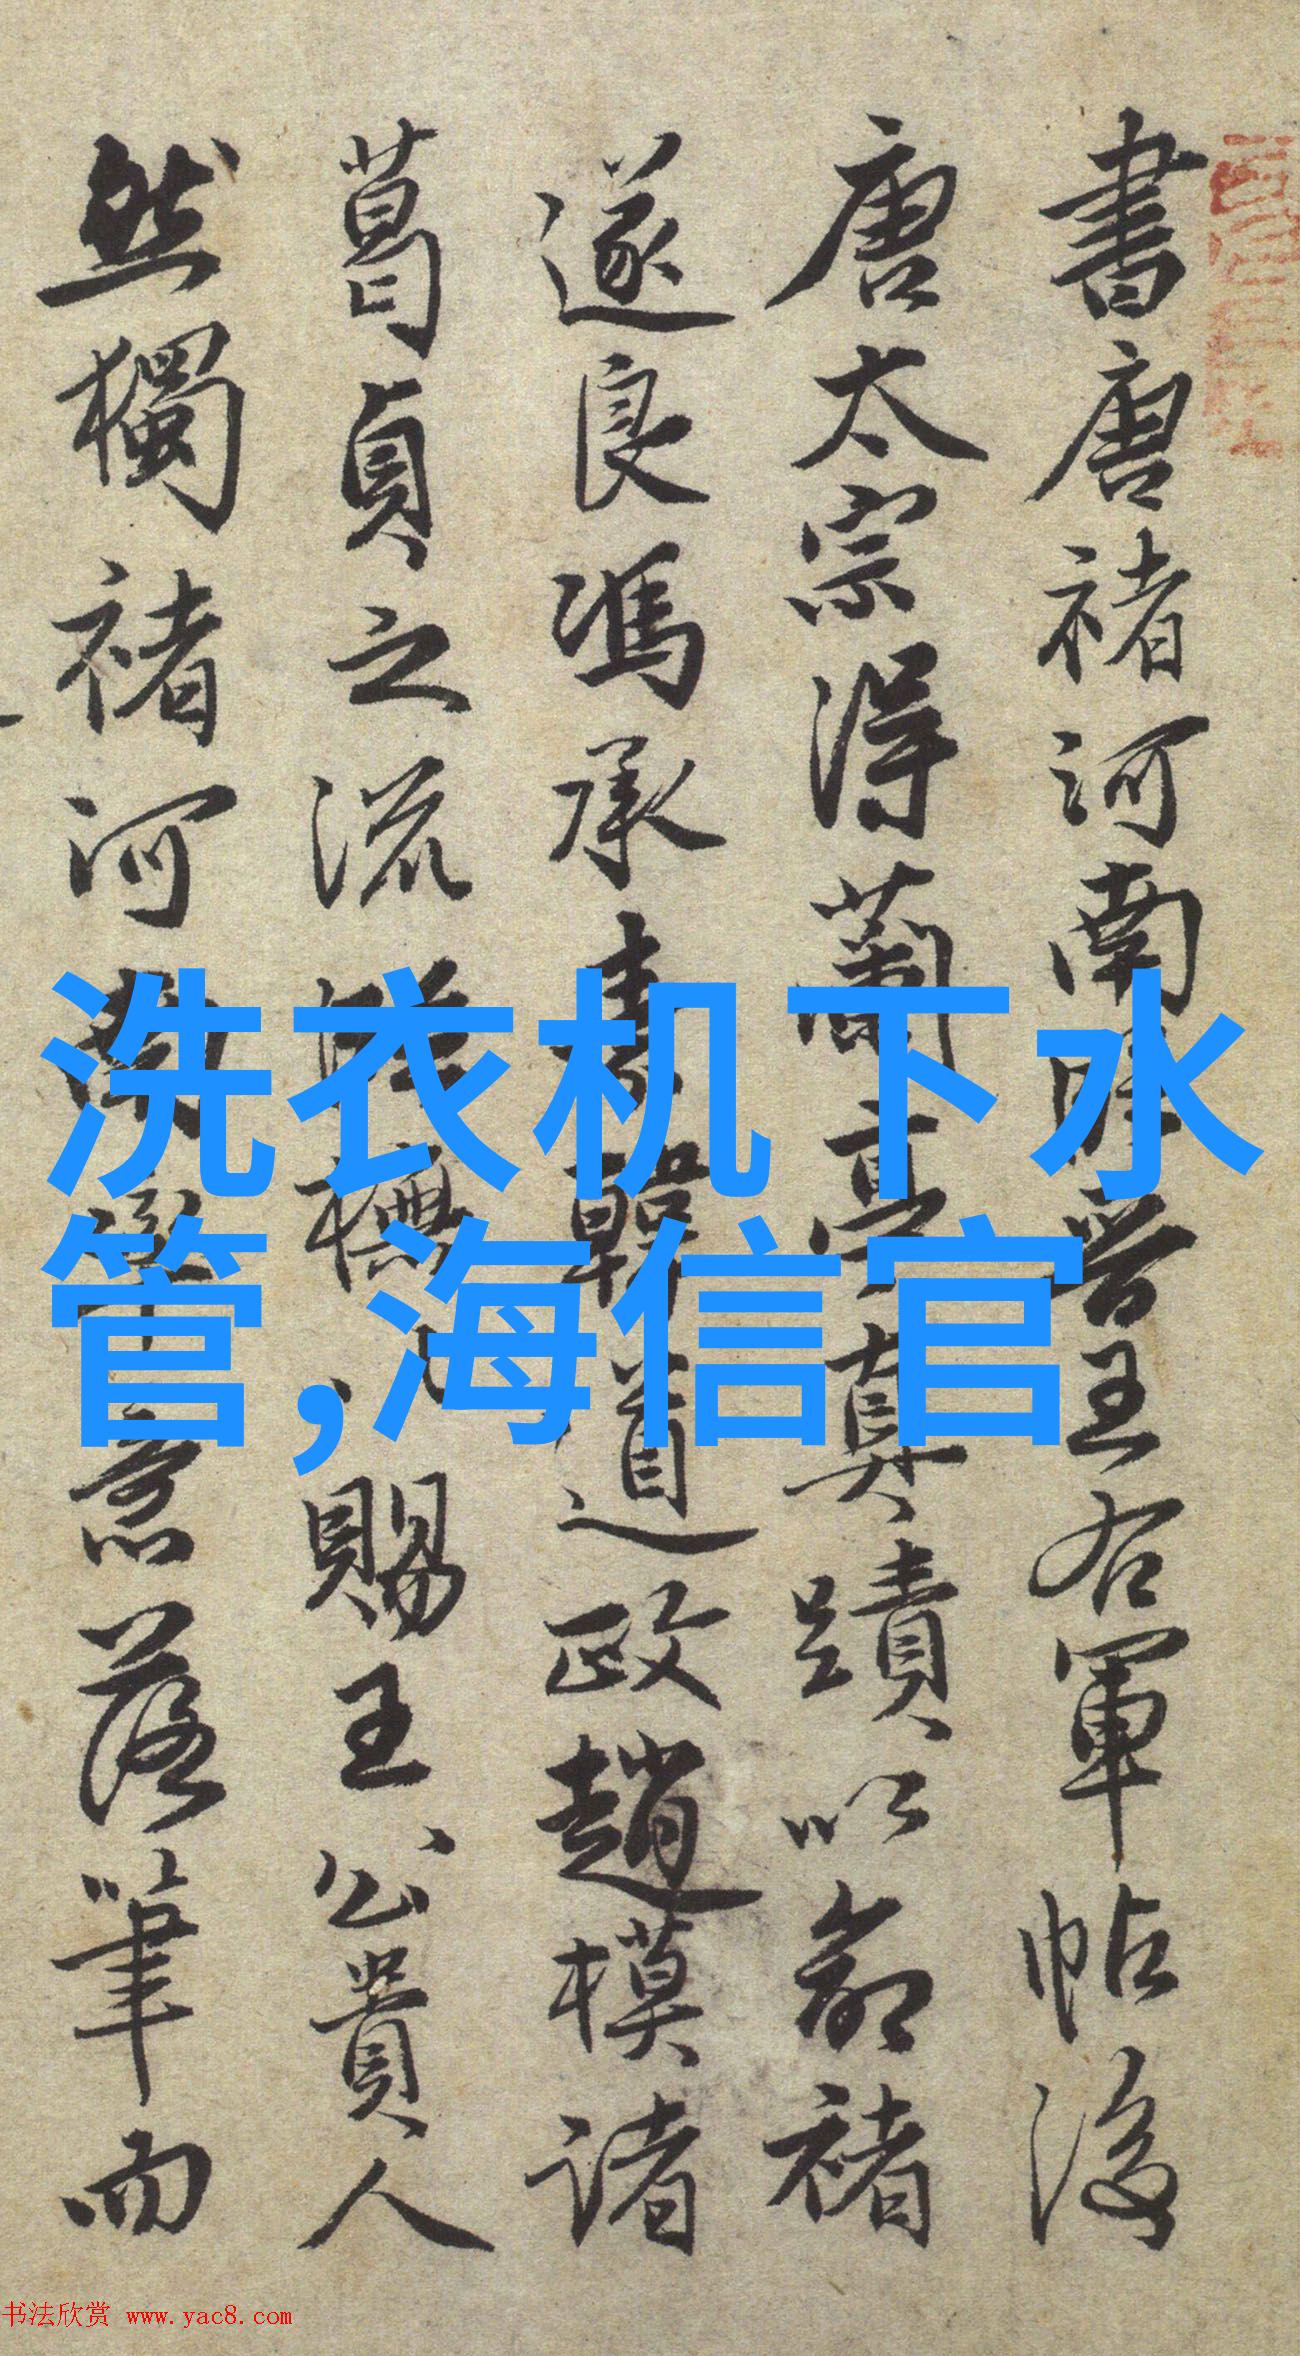 書唐褚河南臨晉王右軍帖後
唐太宗得蘭亭真蹟以命褚
遂良馮承素韓道政趙模諸
葛貞之流
賜王公貴人
然獨褚河
落筆而
洗衣机下水
管,海信官
书法欣赏 www.yac8.com